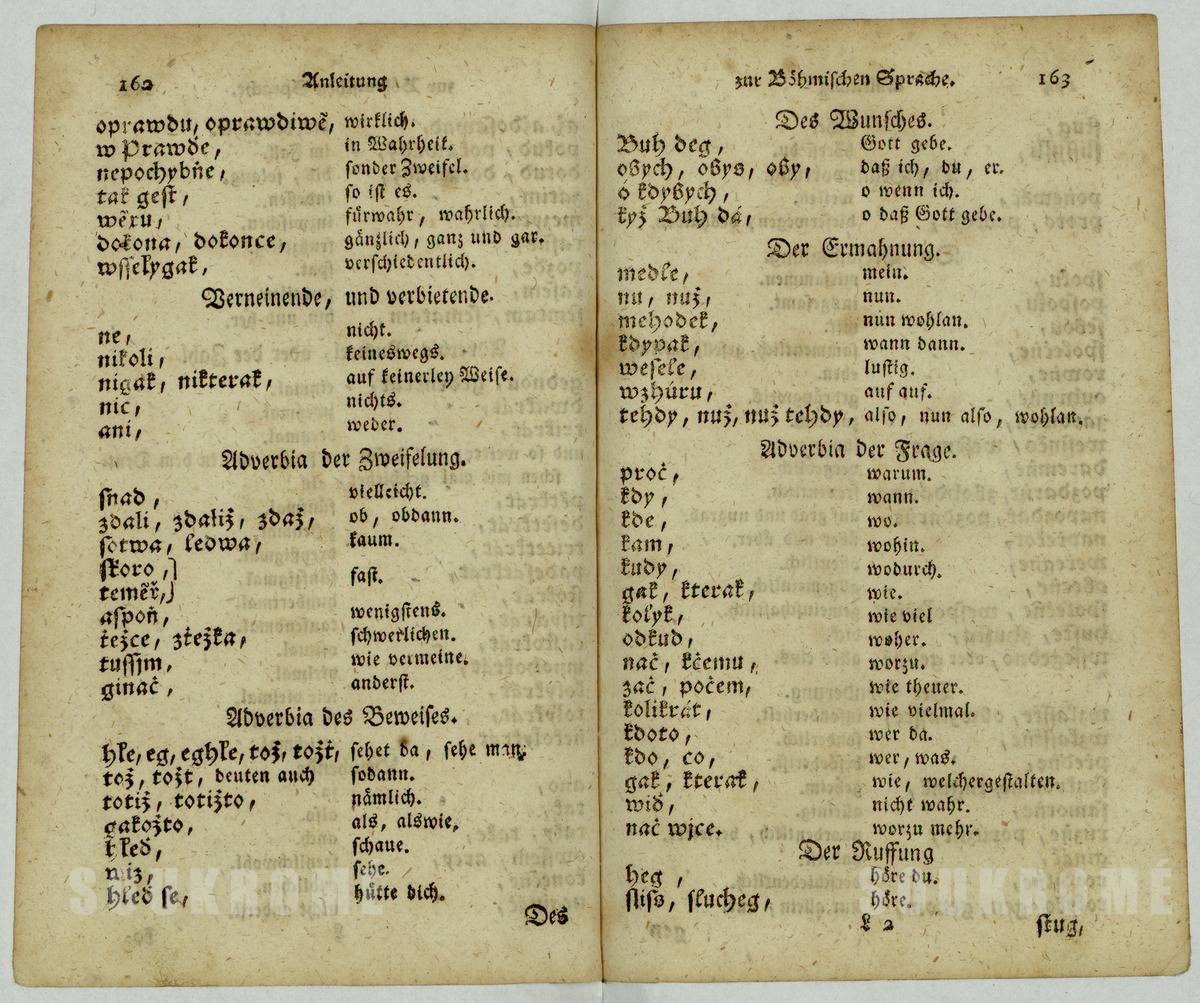 162 Anleitung
oprawdu, oprawdiwě, wirklich.
w Prawdě, in Wahrheit.
nepochybně, sonder Zweifel.
tak gest, so ist es.
wěru, fürwahr, wahrlich.
dokona, dokonce, gänzlich, ganz und gar.
wsselygak, verschiedentlich.
Verneinende, und verbietende.
ne, nicht.
nikoli, keineswegs.
nigak, nikterak, auf keinerley Weise.
nic, nichts.
ani, weder.
Adverbia der Zweifelung.
snad, vielleicht.
zdali, zdaliž, zdaž, ob, obdann.
sotwa, ledwa, kaum.
skoro,
fast.
teměř,
aspoň, wenigstens.
těžce, ztěžka, schwerlichen.
tussjm, wie vermeine.
ginač, anderst.
Adverbia des Beweises.
hle, eg, eghle, tož, tožt, sehet da, sehe man.
tož, tožt, deuten auch sodann.
totiž, totižto, nämlich.
gakožto, als, alswie.
hleď, schaue.
wiz, sehe.
hleď se, hütte dich.
Des
zur Böhmischen Sprache. 163
Des Wunsches.
Buh deg, Gott gebe.
obych, obys, oby, daß ich, du, er.
ó kdybych, o wenn ich.
kyž Buh dá, o daß Gott gebe.
Der Ermahnung.
medle, mein.
nu, nuž, nun.
mehodek, nun wohlan.
kdypak, wann dann.
wesele, lustig.
wzhúru, auf auf.
tehdy, nuž, nuž tehdy, also, nun also, wohlan.
Adverbia der Frage.
proč, warum.
kdy, wann.
kde, wo.
kam, wohin.
kudy, wodurch.
gak, kterak, wie.
kolyk, wie viel
odkud, woher.
nač, kčemu, worzu.
zač, počem, wie theuer.
kolikrát, wie vielmal.
kdoto, wer da.
kdo, co, wer, was.
gak, kterak, wie, welchergestalten.
wiď, nicht wahr.
nač wjce. worzu mehr.
Der Ruffung
heg, höre du.
sliss, slucheg, höre.
L 2 stug,